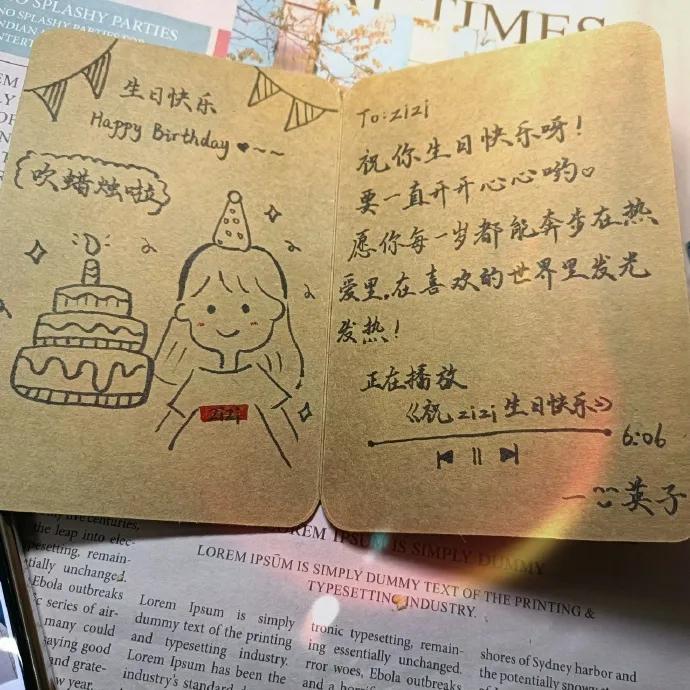 NO SPLASHY PARTIES
TIMES
生日快乐
Happy Birthday
吹蜡烛啦
zizj
To:zizj
祝你生日快乐呀!
要一直开开心心哟。
愿你每一岁都能奔步在热
爱里,在喜欢的世界里发光
发热!
正在播放
《祝zizj生日快乐》
6:06
一英子
LOREM IPSUM IS SIMPLY DUMMY
LOREM IPSŪM IS SIMPLY DUMMY TEXT OF THE PRINTING &
TYPESETTING INDUSTRY.
five centuries,
the leap into elec-
typesetting, remain-
tially unchanged.
Ebola outbreaks
series of air-
many could
saying good
and grate-
year.
Lorem Ipsum is simply
dummy text of the printing
and typesetting industry.
Lorem Ipsum has been the
industry's standard
tronic typesetting, remain-
ing essentially unchanged.
rror woes, Ebola outbreaks
shores of Sydney harbor and
the potentially